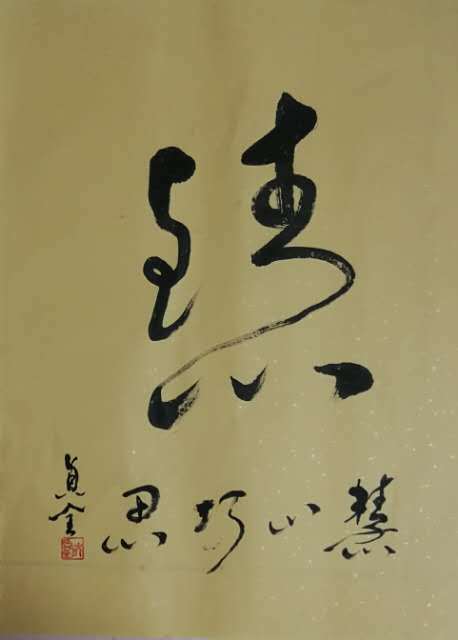 慧
慧心巧思